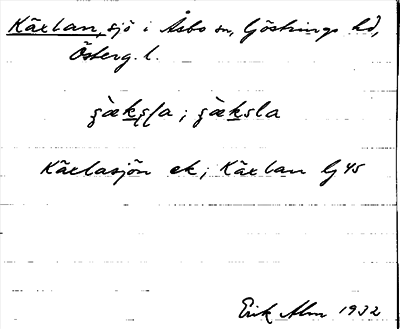 Käxlan, sjö i Åsbo sn, Göstrings hd,
Österg. l.
ʂὰeksla ; ʂὰeksla
Käxlasjön ek; Käxlan Gj 45
Erik Alm 1932